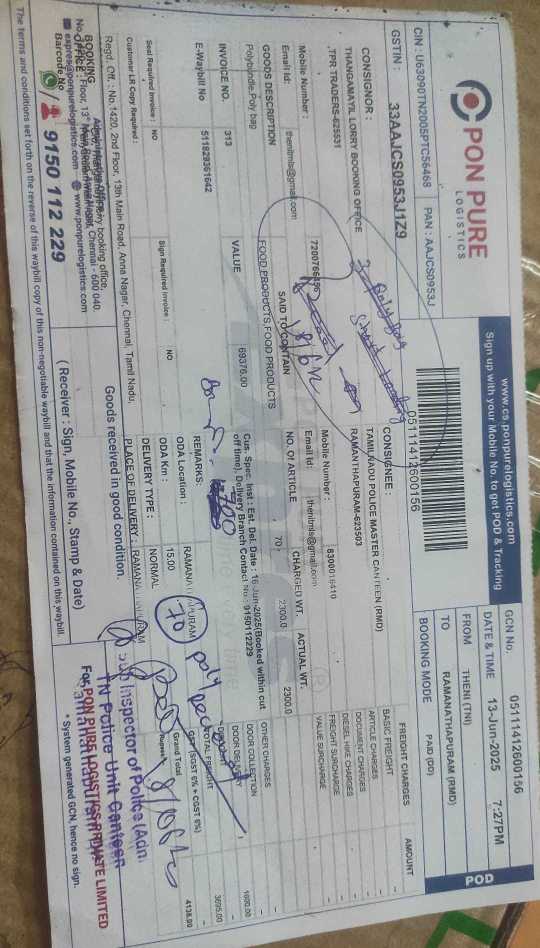 PON PURE
LOGISTICS
www.cs.ponpurelogistics.com
Sign up with your Mobile No. to get POD & Tracking
05111412600156
GCN No. 05111412600156
DATE & TIME 13-Jun-2025 7:27PM
FROM THENI (TNI)
TO RAMANATHAPURAM (RMD)
BOOKING MODE PAID (DD)
POD
CIN : U63090TN2005PTC56468 PAN : AAJCS0953J
GSTIN : 33AAJCS0953J1Z9
CONSIGNOR :
THANGAMAYIL LORRY BOOKING OFFICE
,TPR TRADERS-625531
Mobile Number : 7200766496
Email Id: thenitmls@gmail.com
CONSIGNEE :
TAMILNADU POLICE MASTER CANTEEN (RMD)
RAMANATHAPURAM-623503
Mobile Number : 8300016410
Email Id: thenitmls@gmail.com
3 poly bag
Short Loading
GOODS DESCRIPTION SAID TO CONTAIN NO. Of ARTICLE CHARGED WT. ACTUAL WT.
Polybundle,Poly bag FOOD PRODUCTS,FOOD PRODUCTS 70 2300.0 2300.0
INVOICE NO. 313 VALUE 69376.00
E-Waybill No 511829361642
Cus. Spec. Inst : Est. Del. Date : 16 Jun-2025(Booked within cut
off time); Delivery Branch Contact No : 9150112229
REMARKS:
Seal Required Invoice : NO Sign Required Invoice : NO
Customer LR Copy Required :
ODA Location : RAMANATHAPURAM
ODA Km : 15.00
DELIVERY TYPE : NORMAL
PLACE OF DELIVERY : RAMANATHAPURAM
70 poly
FREIGHT CHARGES AMOUNT
BASIC FREIGHT -
ARTICLE CHARGES -
DOCUMENT CHARGES -
DIESEL HIKE CHARGES -
FREIGHT SURCHARGE -
VALUE SURCHARGE -
OTHER CHARGES -
DOOR COLLECTION -
DOOR DELIVERY 1600.00
TOTAL FREIGHT 3695.00
GST (SGST 6% + CGST 6%) -
Grand Total 4138.00
Rupees
Regd. Off. : No.1420, 2nd Floor, 13th Main Road, Anna Nagar, Chennai, Tamil Nadu,
BOOKING
OFFICE :
Chennai - 600 040.
expres@ponpurelogistics.com www.ponpurelogistics.com
Barcode No
9150 112 229
Goods received in good condition.
( Receiver : Sign, Mobile No., Stamp & Date)
Sub Inspector of Police (Adn.
TN Police Unit Canteen
Ramanathapuram
For PON PURE LOGISTICS PRIVATE LIMITED
* System generated GCN, hence no sign.
The terms and conditions set forth on the reverse of this waybill copy of this non-negotiable waybill and that the information contained on this waybill.